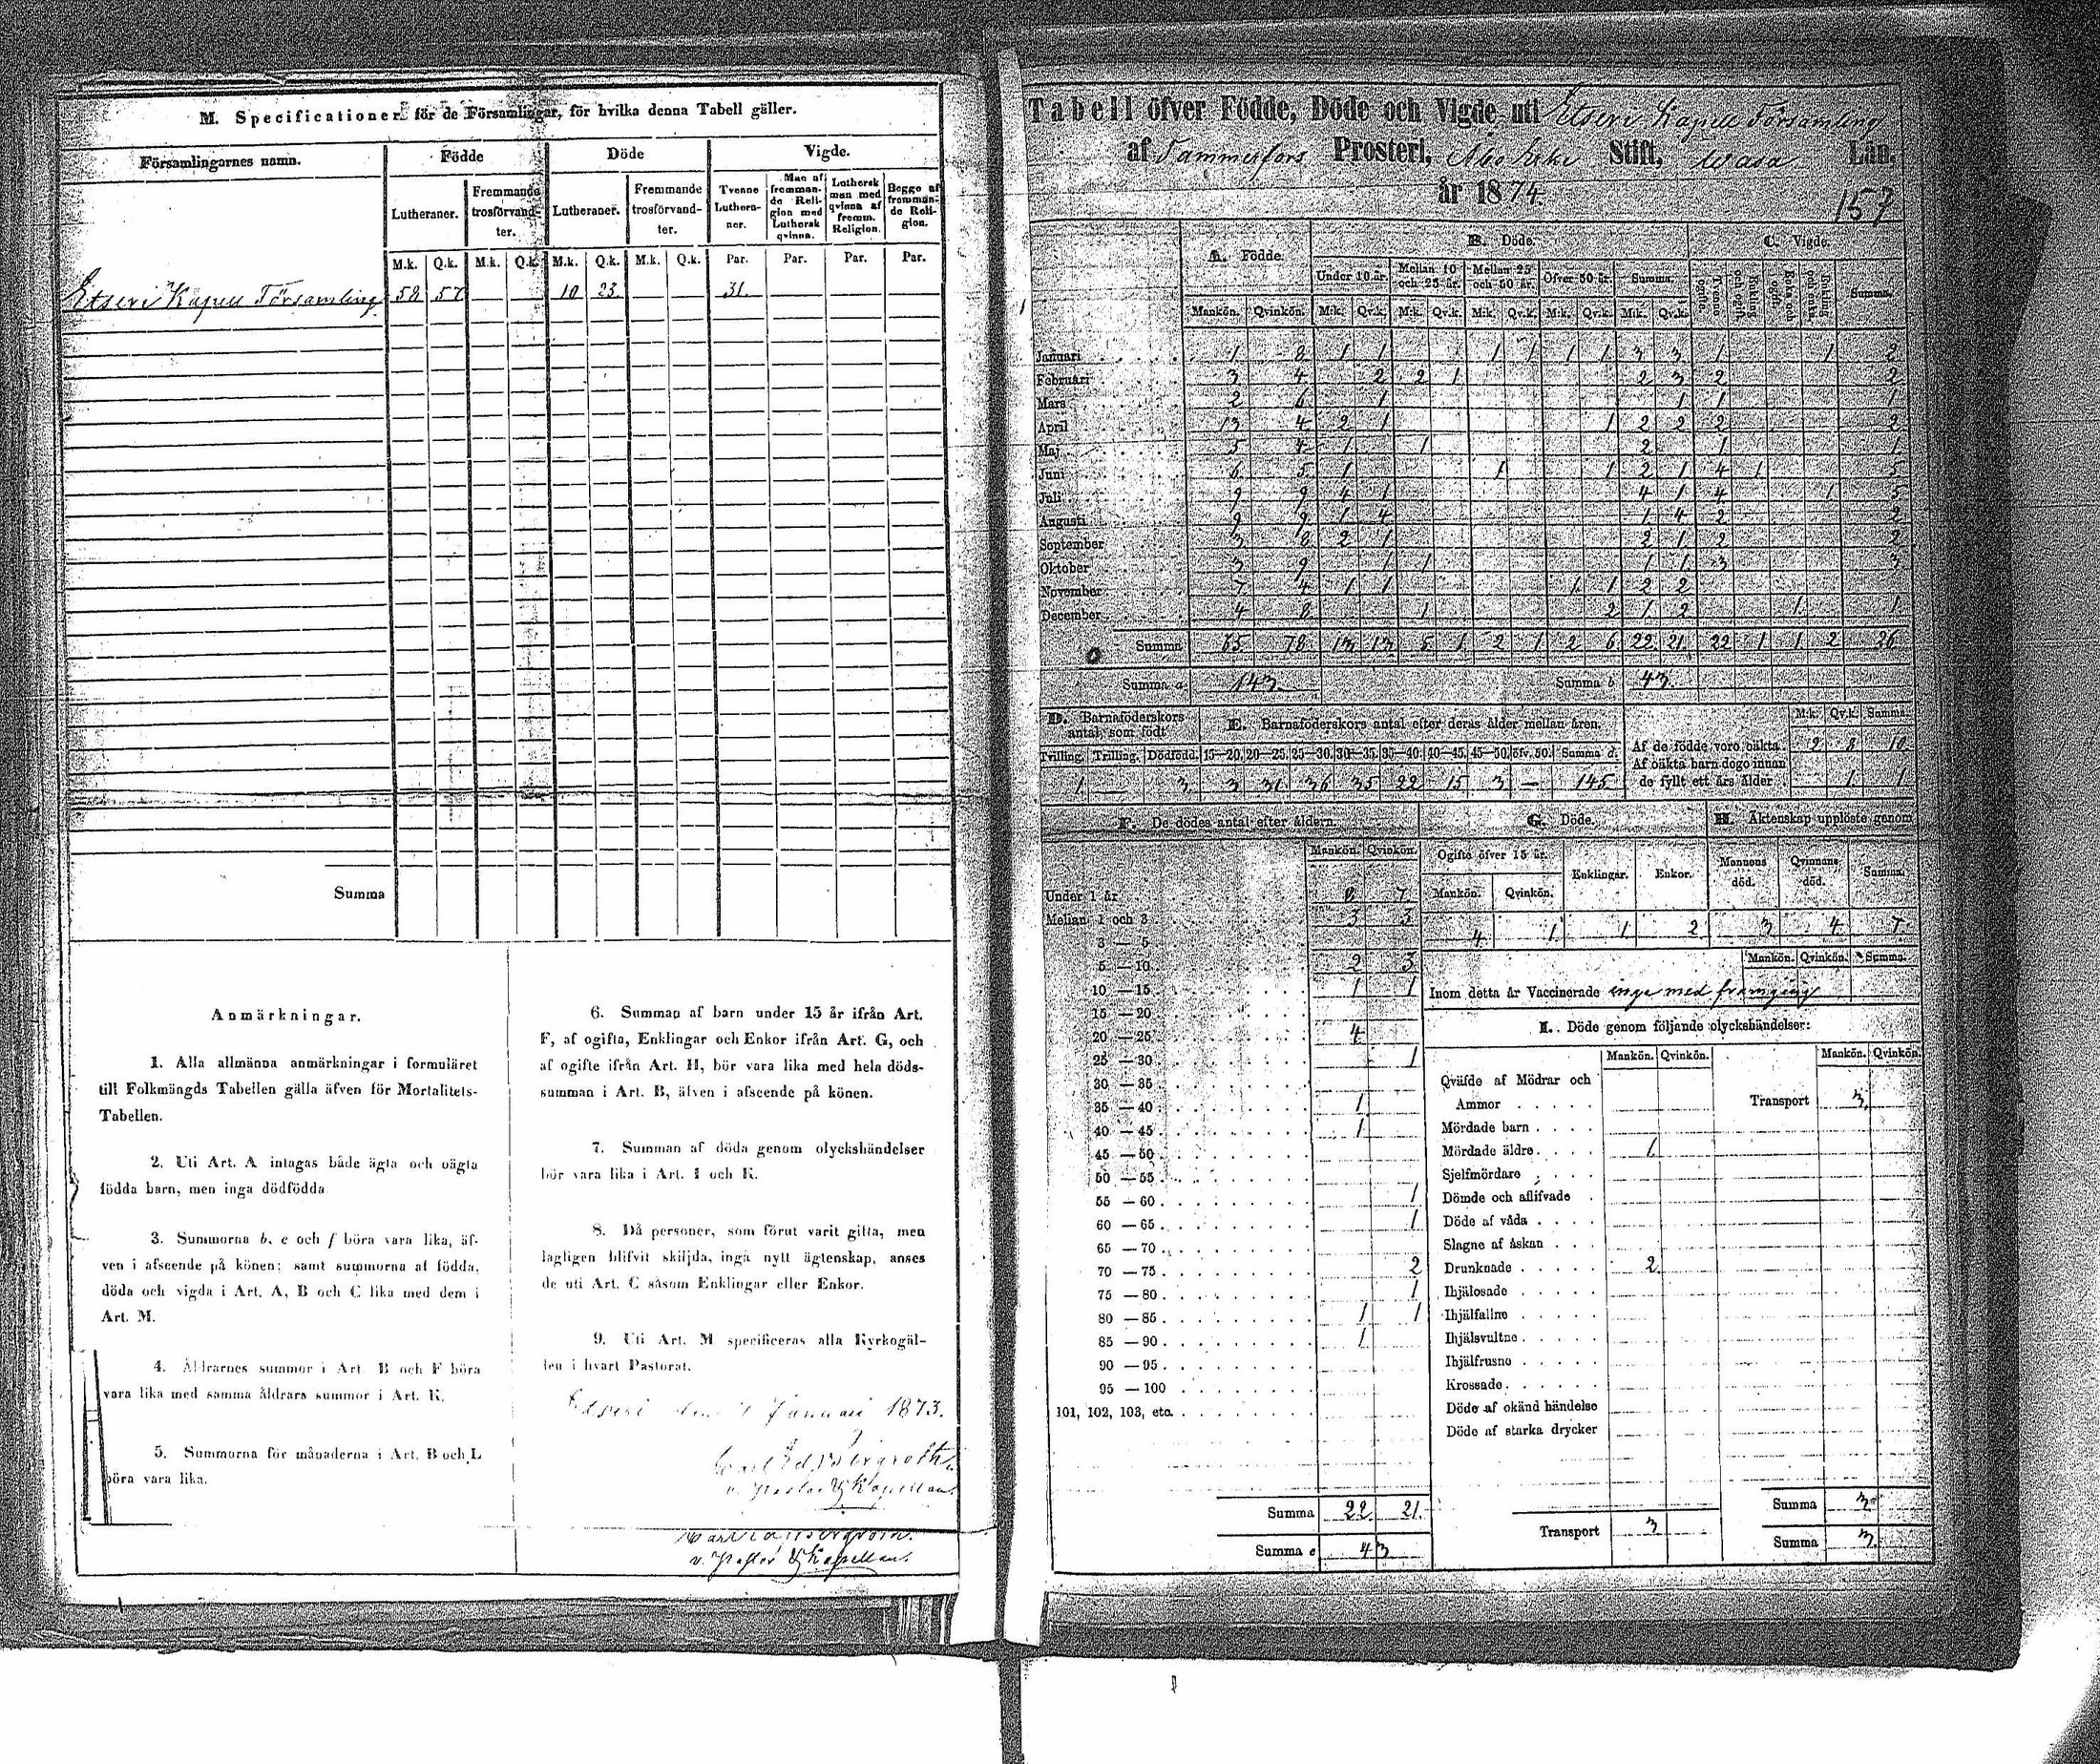 M. Specificationer för de Församlingar, för hvilka denna Tabell gäller.
Församlingarnes namn. Födde Döde Vigde.
Lutheraner. Fremmande trosförvandter. Lutheraner. Fremmande trosförvandter. Tvenne Lutheraner. Man af fremmande Religion med Luthersk qvinna. Luthersk man med qvinna af fremm. Religion. Begge af fremmande Religion.
M.k. Q.k. M.k. Q.k. M.k. Q.k. M.k. Q.k. Par. Par. Par. Par.
Etseri Kapell Församling 58 57 10 23 31.
Summa
Anmärkningar.
1. Alla allmänna anmärkningar i formuläret
till Folkmängds Tabellen gälla äfven för Mortalitets-
Tabellen.
2. Uti Art. A intagas både ägta och oägta
födda barn, men inga dödfödda
3. Summorna b, e och f böra vara lika, äf-
ven i afseende på könen; samt summorna af födda,
döda och vigda i Art. A, B och C lika med dem i
Art. M.
4. Åldrarnes summor i Art. B och F böra
vara lika med samma åldrars summor i Art. K.
5. Summorna för månaderna i Art. B och L
böra vara lika.
6. Summan af barn under 15 år ifrån Art.
F, af ogifta, Enklingar och Enkor ifrån Art. G, och
af ogifte ifrån Art. H, bör vara lika med hela döds-
summan i Art. B, äfven i afseende på könen.
7. Summan af döda genom olyckshändelser
bör vara lika i Art. I och K.
8. Då personer, som förut varit gifta, men
lagligen blifvit skiljda, ingå nytt ägtenskap, anses
de uti Art. C såsom Enklingar eller Enkor.
9. Uti Art. M specificeras alla Kyrkogäl-
len i hvart Pastorat.
Etseri den Januari 1873.
Carl Ed. Bergroth.
v. Pastor & Kapellan.
v. Pastor & Kapellan.
Tabell öfver Födde, Döde och Vigde uti Etseri Kapell Församling
af Tammerfors Prosteri, Åbo Erke Stift, Wasa Län,
år 1874.
157
A. Födde. B. Döde. C. Vigde.
Under 10 år. Mellan 10 och 25 år. Mellan 25 och 50 år. Öfver 50 år. Summa. Summa.
Mankön. Qvinkön. M:k. Qv.k. M:k. Qv.k. M:k. Qv.k. M:k. Qv.k. M:k. Qv.k.
Januari 1 8 1 1 1 1 1 1 3 3 1 1 2
Februari 3 4 2 2 1 2 3 2 2
Mars 2 6 1 1 1 1
April 13 4 2 1 1 2 2 2 2
Maj 5 4 1 1 2 1 1
Juni 6 5 1 1 1 2 1 4 1 5
Juli 9 9 4 1 4 1 4 1 5
Augusti 9 9 1 4 1 4 2 2
September 3 8 2 1 2 1 2 2
Oktober 3 9 1 1 1 1 3 3
November 7 4 1 1 1 1 2 2
December 4 8 1 2 1 2 1 1
Summa 65 78 13 13 5 1 2 1 2 6 22 21 22 1 1 2 26
Summa a 143. Summa b 43.
D. Barnaföderskors antal, som födt E. Barnaföderskors antal efter deras ålder mellan åren. M:k. Qv.k. Summa.
Tvilling. Trilling. Dödfödd. 15—20. 20—25. 25—30. 30—35. 35—40. 40—45. 45—50. öfv. 50. Summa d.
1 — 3 3 31 36 35 22 15 3 — 145
Af de födde voro oäkta 2 8 10
Af oäkta barn dogo innan
de fyllt ett års ålder 1 1
F. De dödes antal efter åldern.
Mankön. Qvinkön.
Under 1 år 8 7
Mellan 1 och 3 3 3
3 — 5
5 — 10 2 3
10 — 15 1 1
15 — 20
20 — 25 4
25 — 30 1
30 — 35
35 — 40 1
40 — 45 1
45 — 50
50 — 55
55 — 60 1
60 — 65 1
65 — 70
70 — 75 2
75 — 80 1
80 — 85 1 1
85 — 90 1
90 — 95
95 — 100
101, 102, 103, etc.
Summa 22 21.
Summa e 43
G. Döde. H. Äktenskap upplöste genom
Ogifta öfver 15 år. Enklingar. Enkor. Mannens död. Qvinnans död. Summa.
Mankön. Qvinkön.
4 1 1 2 3 4 7
Mankön. Qvinkön. Summa.
Inom detta år Vaccinerade inga med framgång
I. Döde genom följande olyckshändelser:
Mankön. Qvinkön. Mankön. Qvinkön.
Qväfde af Mödrar och
Ammor Transport 3.
Mördade barn
Mördade äldre 1.
Sjelfmördare
Dömde och aflifvade
Döde af våda
Slagne af åskan
Drunknade 2.
Ihjälosade
Ihjälfallne
Ihjälsvultne
Ihjälfrusne
Krossade
Döde af okänd händelse
Döde af starka drycker
Summa 3.
Transport 3
Summa 3.